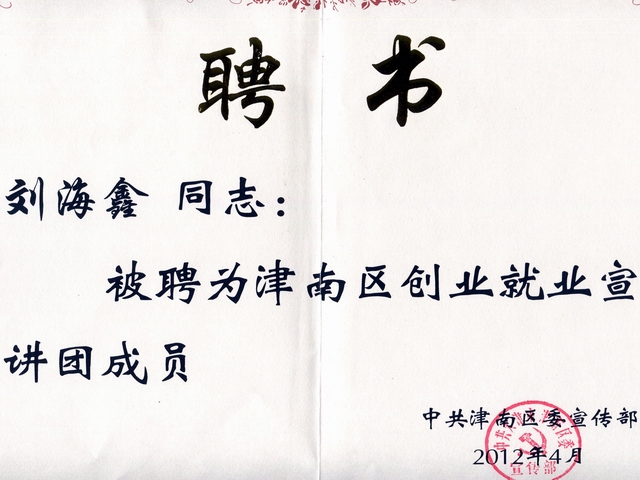 聘书
刘海鑫 同志：
被聘为津南区创业就业宣
讲团成员
中共津南区委宣传部
2012年4月
中共天津市津南区委
宣传部